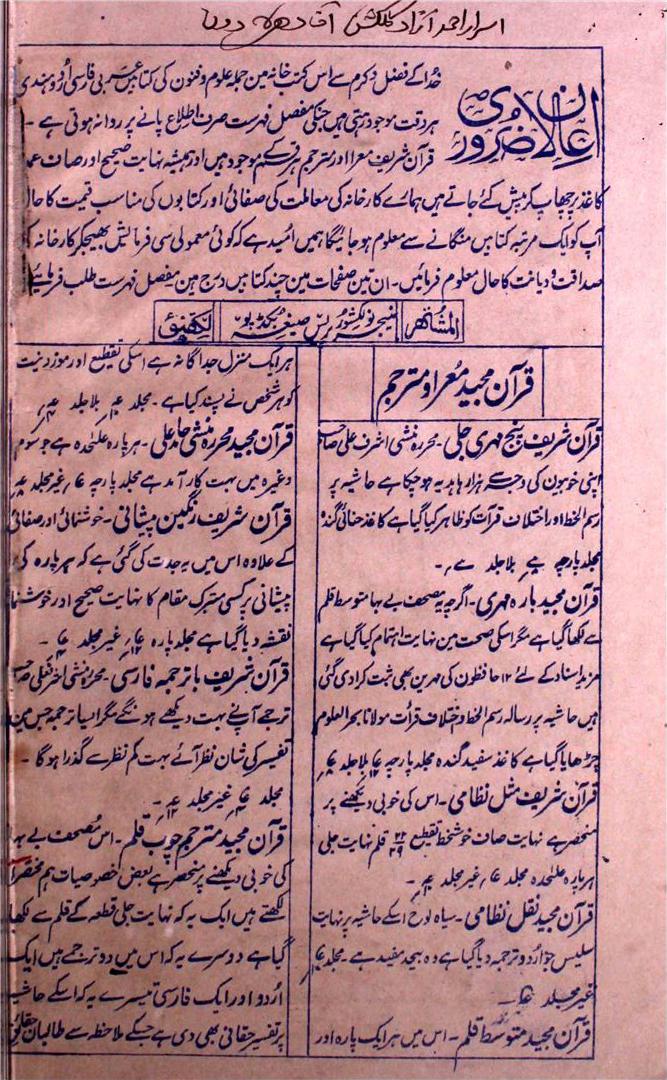 اسرار احمد آزاد
اعلان ضروری
خدا کے فضل و کرم سے اس کتب خانہ مین جملہ علوم و فنون کی کتابیں عربی فارسی اردو ہندی
ہر وقت موجود رہتی ہیں جنکی مفصل فہرست صرف اطلاع پانے پر روانہ ہوتی ہے ۔
قرآن شریف معرا اور مترجم ہر قسم کے موجود ہیں اور ہمیشہ نہایت صحیح اور صاف عمدہ
کاغذ پر چھاپ کر پیش کئے جاتے ہیں ہمارے کارخانہ کی معاملت کی صفائی اور کتابوں کی مناسب قیمت کا حال
آپ کو ایک مرتبہ کتابیں منگانے سے معلوم ہو جائیگا ہمیں امید ہے کہ کوئی معمولی سی فرمائش بھیجکر کارخانہ کی
صداقت و دیانت کا حال معلوم فرمائیں ۔ ان تین صفحات مین چند کتابیں درج ہین مفصل فہرست طلب فرمائیے
المشتہر
منیجر نولکشور پریس صیغہ بکڈپو
لکھنؤ
قرآن مجید معرا و مترجم
قرآن شریف پنج مہری جلی ۔ محررہ منشی اشرف علی صاحب
اپنی خوبیون کی وجہ سے ہزارہا ہدیہ ہو چکا ہے حاشیہ پر
رسم الخط اور اختلاف قرأت کو ظاہر کیا گیا ہے کاغذ حنائی گندہ
مجلد پارچہ بلا جلد
قرآن مجید بارہ مہری ۔ اگرچہ یہ مصحف بے بہا متوسط قلم
سے لکھا گیا ہے مگر اسکی صحت مین نہایت اہتمام کیا گیا ہے
مزید اسناد کے لئے ۱۲ حافظون کی مہرین بھی ثبت کرا دی گئی
ہیں حاشیہ پر رسالہ رسم الخط و اختلاف قرأت مولانا بحر العلوم
چڑھایا گیا ہے کاغذ سفید گندہ مجلد پارچہ بلا جلد
قرآن شریف مثل نظامی ۔ اس کی خوبی دیکھنے پر
منحصر ہے نہایت صاف خوشخط تقطیع ۲۲/۲۹ قلم نہایت جلی
ہر پارہ علٰحدہ مجلد غیر مجلد
قرآن مجید نقل نظامی ۔ سیاہ لوح اسکے حاشیہ پر نہایت
سلیس جو اردو ترجمہ دیا گیا ہے وہ بیحد مفید ہے ۔ مجلد
غیر مجلد
قرآن مجید متوسط قلم ۔ اس میں ہر ایک پارہ اور
ہر ایک منزل جداگانہ ہے اسکی تقطیع اور موزونیت
کو ہر شخص نے پسند کیا ہے ۔ مجلد بلا جلد
قرآن مجید محررہ منشی حامد علی ۔ ہر پارہ علٰحدہ ہے جو سوم
وغیرہ میں بہت کار آمد ہے مجلد پارچہ غیر مجلد
قرآن شریف رنگین پیشانی ۔ خوشنمائی اور صفائی
کے علاوہ اس میں یہ جدت کی گئی ہے کہ ہر پارہ کی
پیشانی پر کسی متبرک مقام کا نہایت صحیح اور خوشنما
نقشہ دیا گیا ہے مجلد پارہ غیر مجلد
قرآن شریف با ترجمہ فارسی ۔ محررہ منشی اشرفعلی صاحب
ترجمے آپنے بہت دیکھے ہونگے مگر ایسا ترجمہ جس مین
تفسیر کی شان نظر آئے بہت کم نظر سے گذرا ہوگا ۔
مجلد غیر مجلد
قرآن مجید مترجم چوب قلم ۔ اس مصحف بے بہا
کی خوبی دیکھنے پر منحصر ہے بعض خصوصیات ہم مختصراً
لکھتے ہیں ایک یہ کہ نہایت جلی قطعہ کے قلم سے لکھا
گیا ہے دوسرے یہ کہ اس میں دو ترجمے ہیں ایک
اردو اور ایک فارسی تیسرے یہ کہ اسکے حاشیہ
پر تفسیر حقانی بھی دی ہے جسکے ملاحظہ سے طالبان حقائق